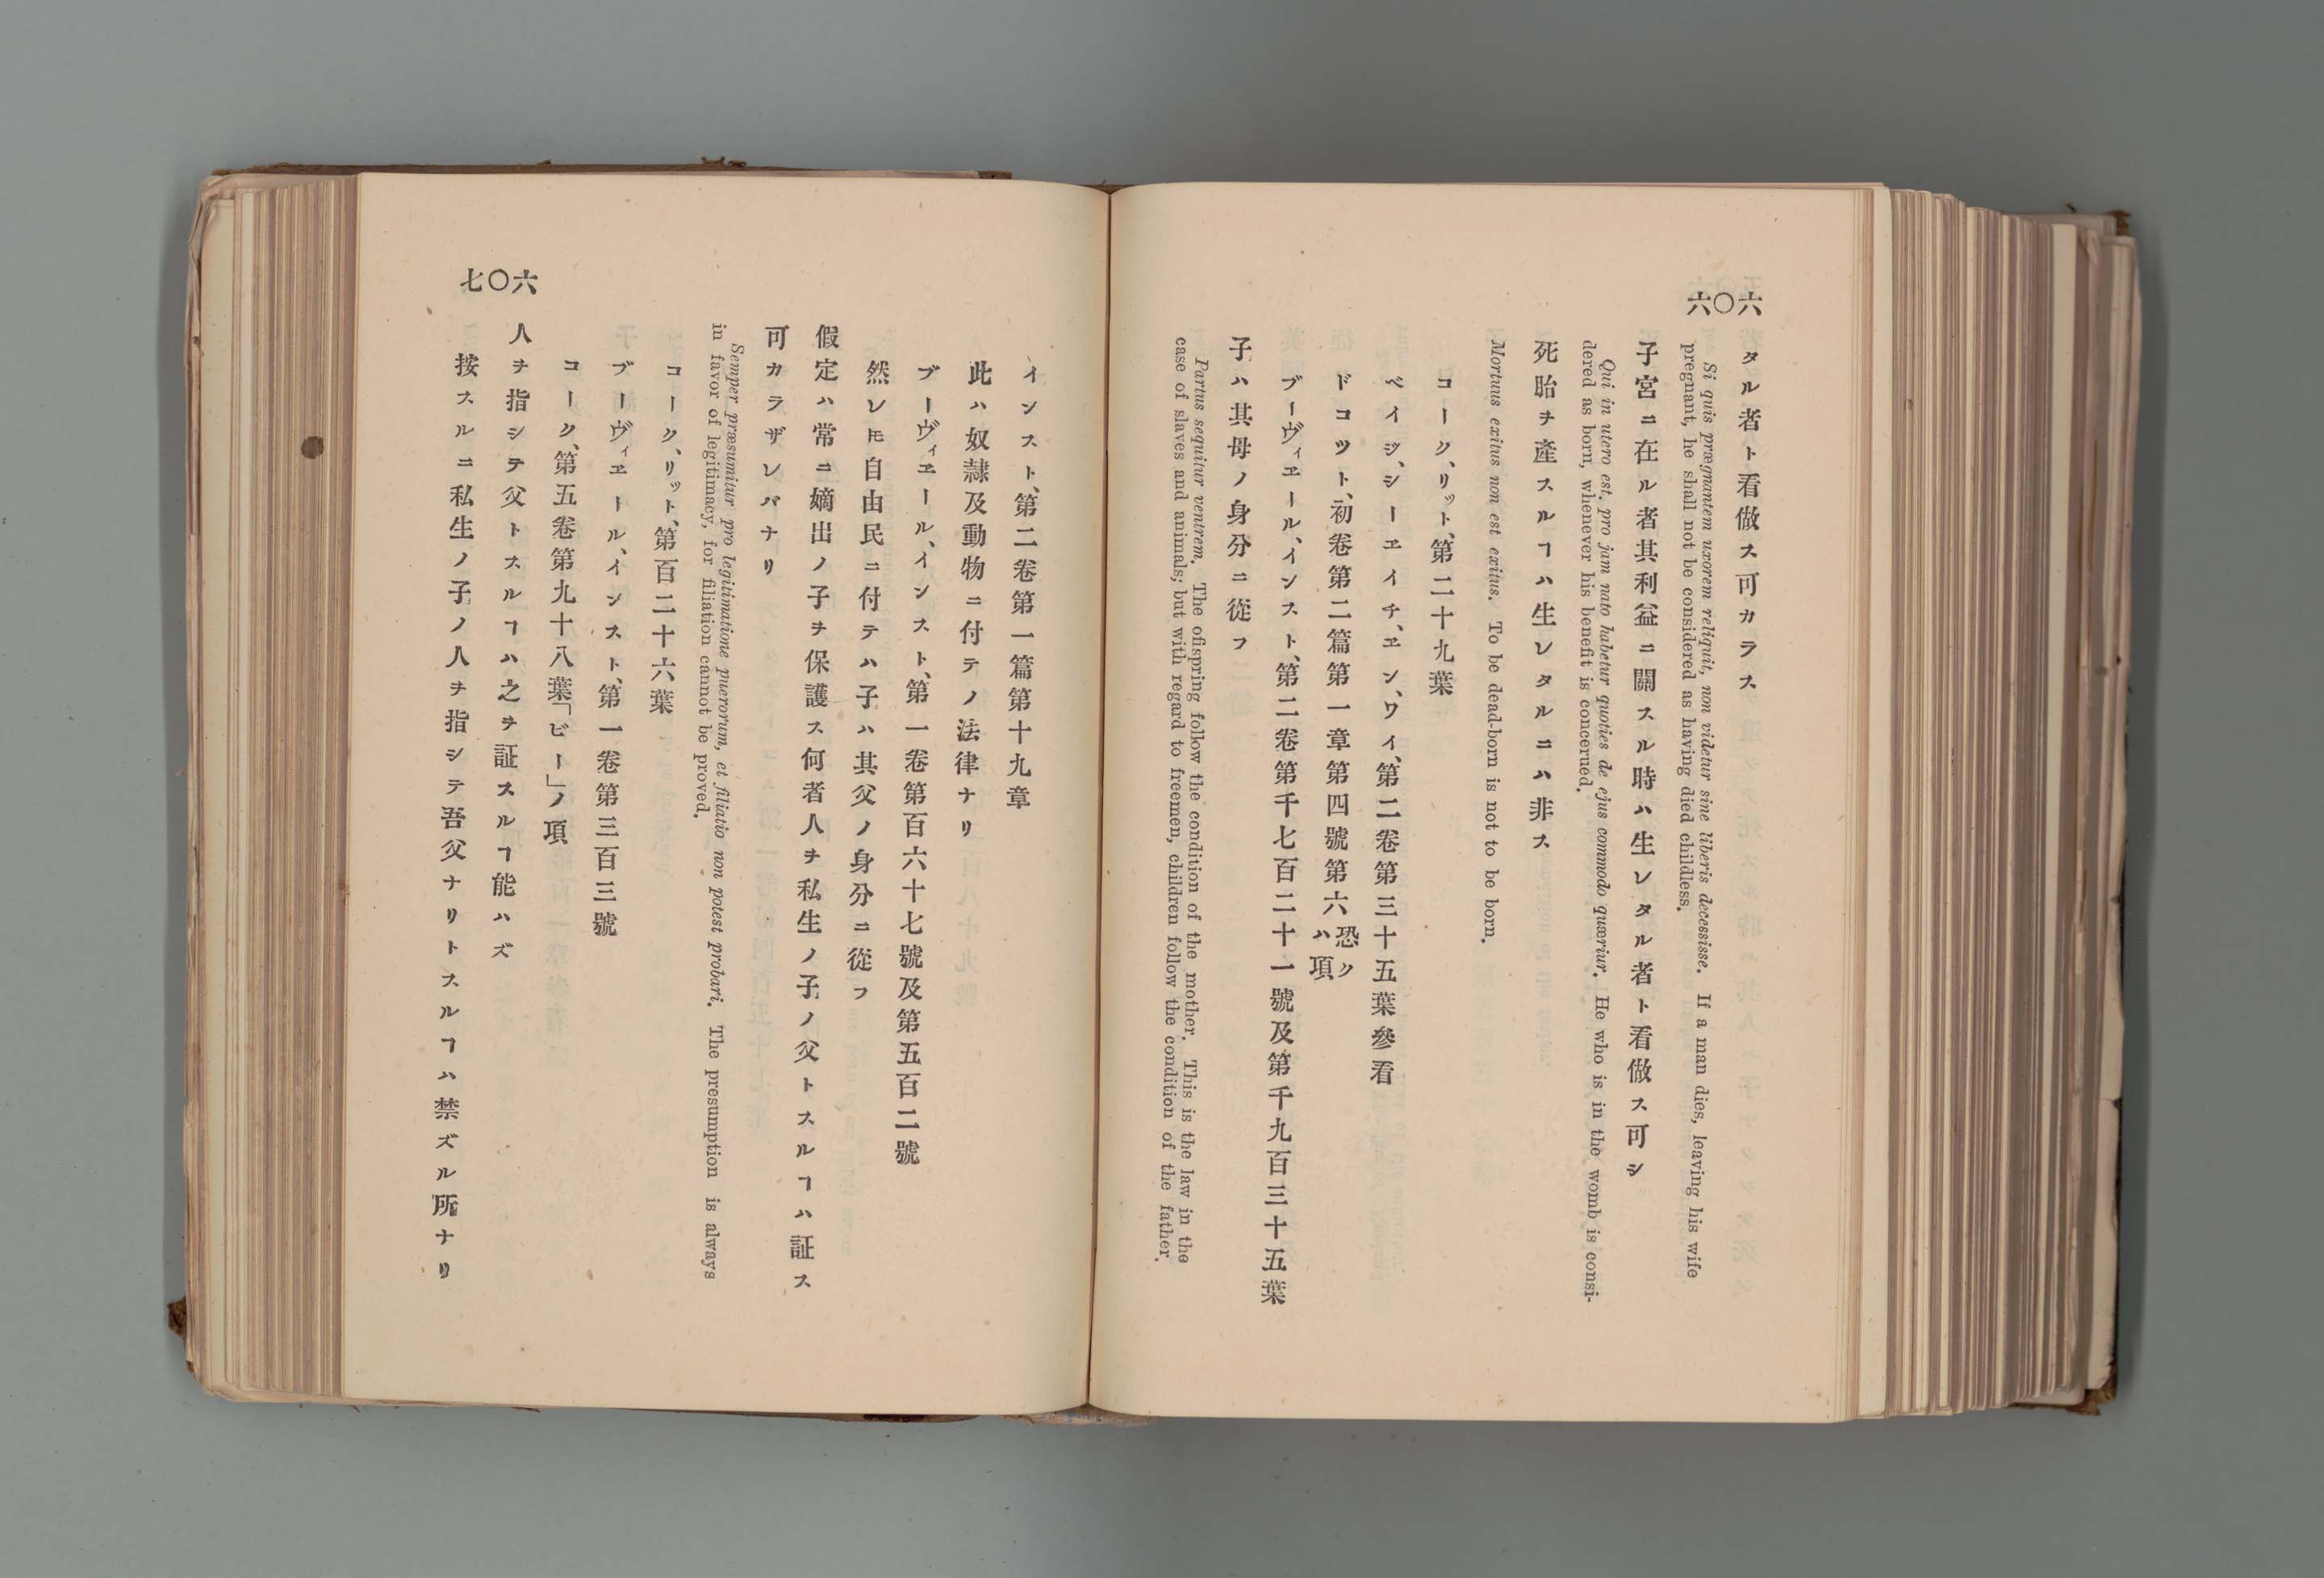 六〇六
タル者ト看做ス可カラス
Si quis prægnantem uxorem reliquit, non videtur sine liberis decessisse. If a man dies, leaving his wife
pregnant, he shall not be considered as having died childless.
子宮ニ在ル者其利益ニ關スル時ハ生レタル者ト看做ス可シ
Qui in utero est, pro jam nato habetur quoties de ejus commodo quæriur. He who is in the womb is consi-
dered as born, whenever his benefit is concerued.
死胎ヲ產スルヿハ生レタルニハ非ス
Mortuus exitus non est exitus. To be dead-born is not to be born.
コーク、リット、第二十九葉
ベイジ、シーエイチ、エン、ワイ、第二卷第三十五葉參看
ドコツト、初卷第二篇第一章第四號第六恐クハ項
ブーヴィエール、インスト、第二卷第千七百二十一號及第千九百三十五葉
子ハ其母ノ身分ニ從フ
Partus sequitur ventrem. The offspring follow the condition of the mother. This is the law in the
case of slaves and animals; but with regard to freemen, children follow the condition of the father.
インスト、第二卷第一篇第十九章
此ハ奴隷及動物ニ付テノ法律ナリ
ブーヴィエール、インスト、第一卷第百六十七號及第五百二號
然レ𪜈自由民ニ付テハ子ハ其父ノ身分ニ從フ
假定ハ常ニ嫡出ノ子ヲ保護ス何者人ヲ私生ノ子ノ父トスルヿハ証ス
可カラザレバナリ
Semper præsumitur pro legitimatione puerorum, et filiatio non potest probari. The presumption is always
in favor of legitimacy, for filiation cannot be proved.
コーク、リット、第百二十六葉
ブーヴィエール、インスト、第一卷第三百三號
コーク、第五卷第九十八葉「ビー」ノ項
人ヲ指シテ父トスルヿハ之ヲ証スルヿ能ハズ
按スルニ私生ノ子ノ人ヲ指シテ吾父ナリトスルヿハ禁ズル所ナリ
七〇六